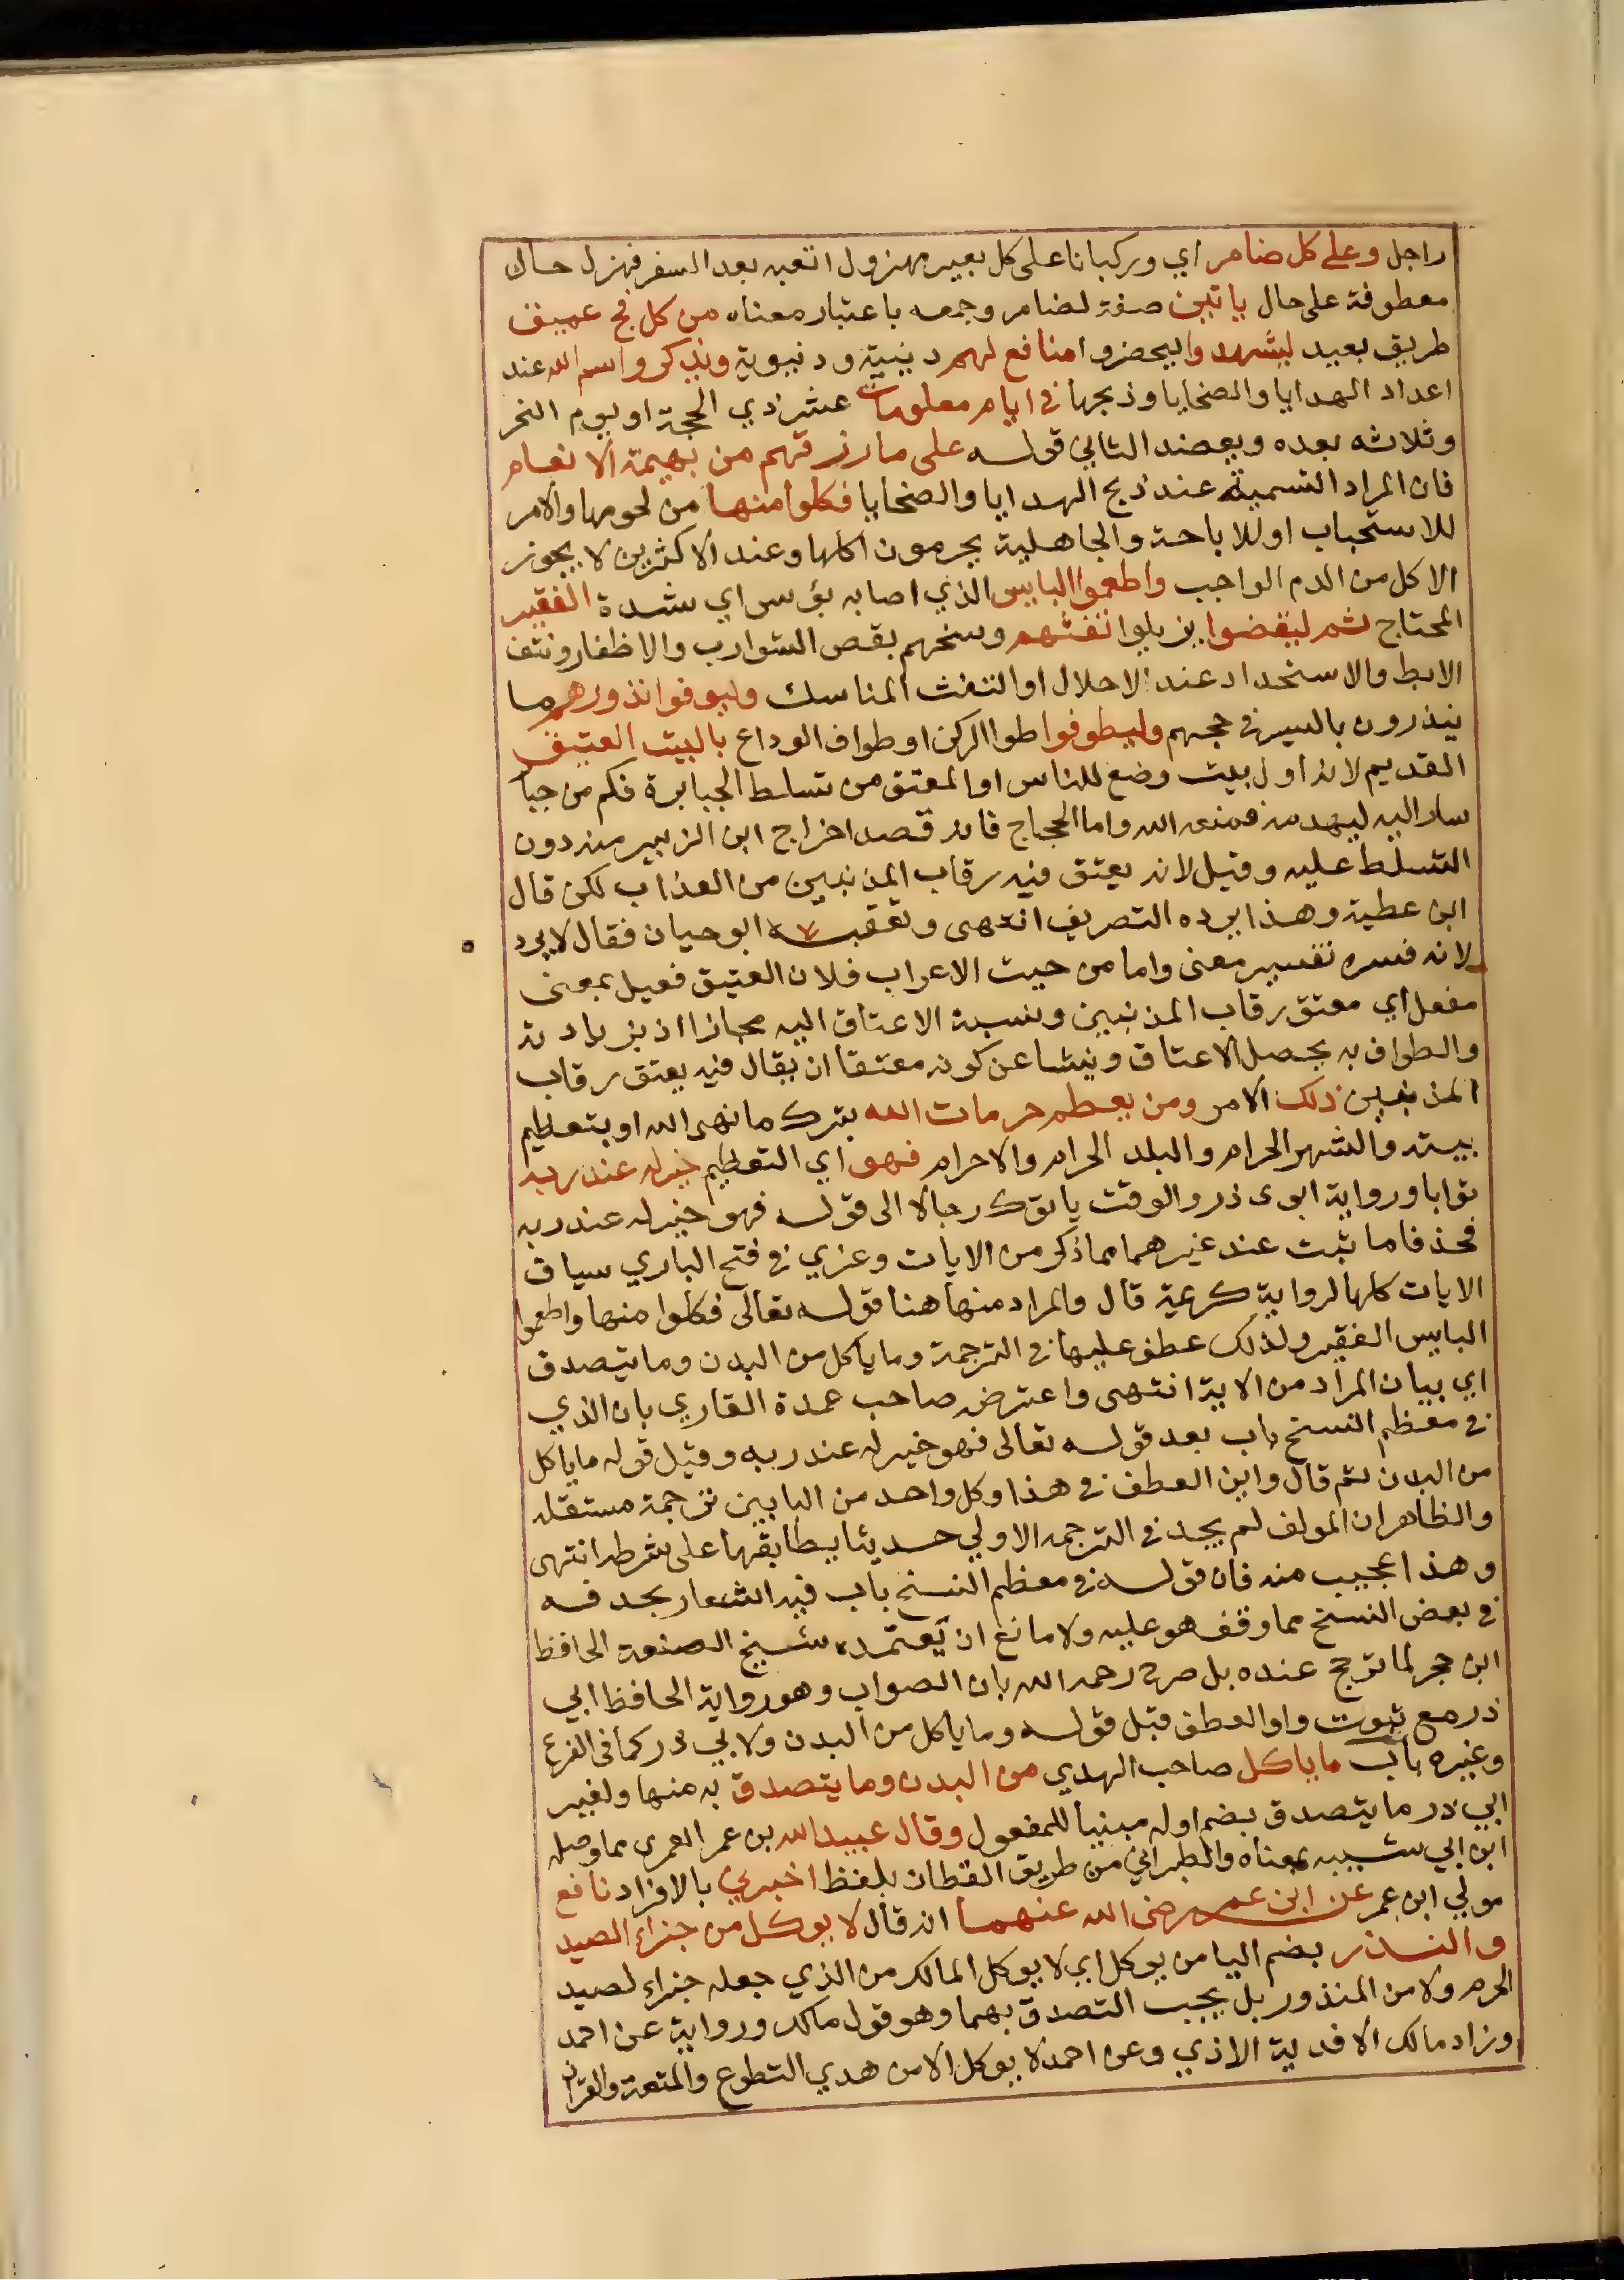 راجل وعلى كل ضامر اي وركبانا على كل بعير مهزول اتعبه بعد السفر فهزل حال
معطوفة على حال ياتين صفة لضامر وجمعه باعتبار معناه من كل فج عميق
طريق بعيد ليشهدوا ليحضروا منافع لهم دينية ودنيوية ويذكروا اسم الله عند
اعداد الهدايا والضحايا وذبحها في ايام معلومات عشر ذي الحجة او يوم النحر
وثلاثه بعده ويعضد الثاني قوله على ما رزقهم من بهيمة الانعام
فان المراد التسمية عند ذبح الهدايا والضحايا فكلوا منها من لحومها والامر
للاستحباب او للاباحة والجاهلية يحرمون اكلها وعند الاكثرين لا يجوز
الاكل من الدم الواجب واطعموا البايس الذي اصابه بؤس اي شدة الفقير
المحتاج ثم ليقضوا يزيلوا تفثهم وسخهم بقص الشوارب والاظفار ونتف
الابط والاستحداد عند الاحلال او التفث المناسك وليوفوا نذورهم ما
ينذرون بالسير في حجهم وليطوفوا طوا الركن او طواف الوداع بالبيت العتيق
القديم لانه اول بيت وضع للناس او المعتق من تسلط الجبابرة فكم من جبا
سار اليه ليهدمه فمنعه الله واما الحجاج فانه قصد اخراج ابن الزبير منه دون
التسلط عليه وقيل لانه يعتق فيه رقاب المذنبين من العذاب لكن قال
ابن عطية وهذا يرده التصريف انتهى وتعقبه ابو حيان فقال لا يرد
لانه فسره تفسير معنى واما من حيث الاعراب فلان العتيق فعيل بمعنى
مفعل اي معتق رقاب المذنبين ونسبة الاعتاق اليه مجازا اذ بزيادته
والطواف به يحصل الاعتاق وينشا عن كونه معتقا ان يقال فيه يعتق رقاب
المذنبين ذلك الامر ومن يعظم حرمات الله بترك ما نهى الله او بتعظيم
بيته والشهر الحرام والبلد الحرام والاحرام فهو اي التعظيم خير له عند ربه
ثوابا ورواية ابوى ذر والوقت ياتوك رجالا الى قوله فهو خير له عند ربه
فحذفا ما ثبت عند غيرهما مما ذكر من الايات وعزي في فتح الباري سياق
الايات كلها لرواية كريمة قال والمراد منها هنا قوله تعالى فكلوا منها واطعموا
البايس الفقير ولذلك عطف عليها في الترجمة وما ياكل من البدن وما يتصدق
اي بيان المراد من الاية انتهى واعترض صاحب عمدة القاري بان الذي
في معظم النسخ باب بعد قوله تعالى فهو خير له عند ربه وقيل قوله ما ياكل
من البدن ثم قال واين العطف في هذا وكل واحد من البابين ترجمة مستقله
والظاهر ان المولف لم يجد في الترجمه الاولي حديثا يطابقها على شرطه انتهى
وهذا عجيب منه فان قوله في معظم النسخ باب فيه اشعار بحذفه
في بعض النسخ مما وقف هو عليه ولا مانع ان يعتمده شيخ الصنعة الحافظ
ابن حجر لما ترجح عنده بل صرح رحمه الله بان الصواب وهو رواية الحافظ ابي
ذر مع ثبوت واو العطف قبل قوله وما ياكل من البدن ولابي ذر كما في الفرع
وغيره باب ما ياكل صاحب الهدي من البدن وما يتصدق به منها ولغير
ابي ذر ما يتصدق بضم اوله مبنيا للمفعول وقال عبيد الله بن عمر العمرى مما وصله
ابن ابي شيبه بمعناه والطبراني من طريق القطان بلفظ اخبرني بالافراد نافع
مولي ابن عمر عن ابن عمر رضى الله عنهما انه قال لا يوكل من جزاء الصيد
والنذر بضم اليا من يوكل اي لا يوكل المالك من الذي جعله جزاء لصيد
الحرم ولا من المنذور بل يجب التصدق بهما وهو قول مالك ورواية عن احمد
وزاد مالك الا فدية الاذي وعن احمد لا يوكل الا من هدي التطوع والمتعة والقران